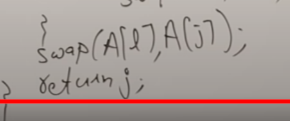 }
swap(A[l],A[j]);
return j;
}